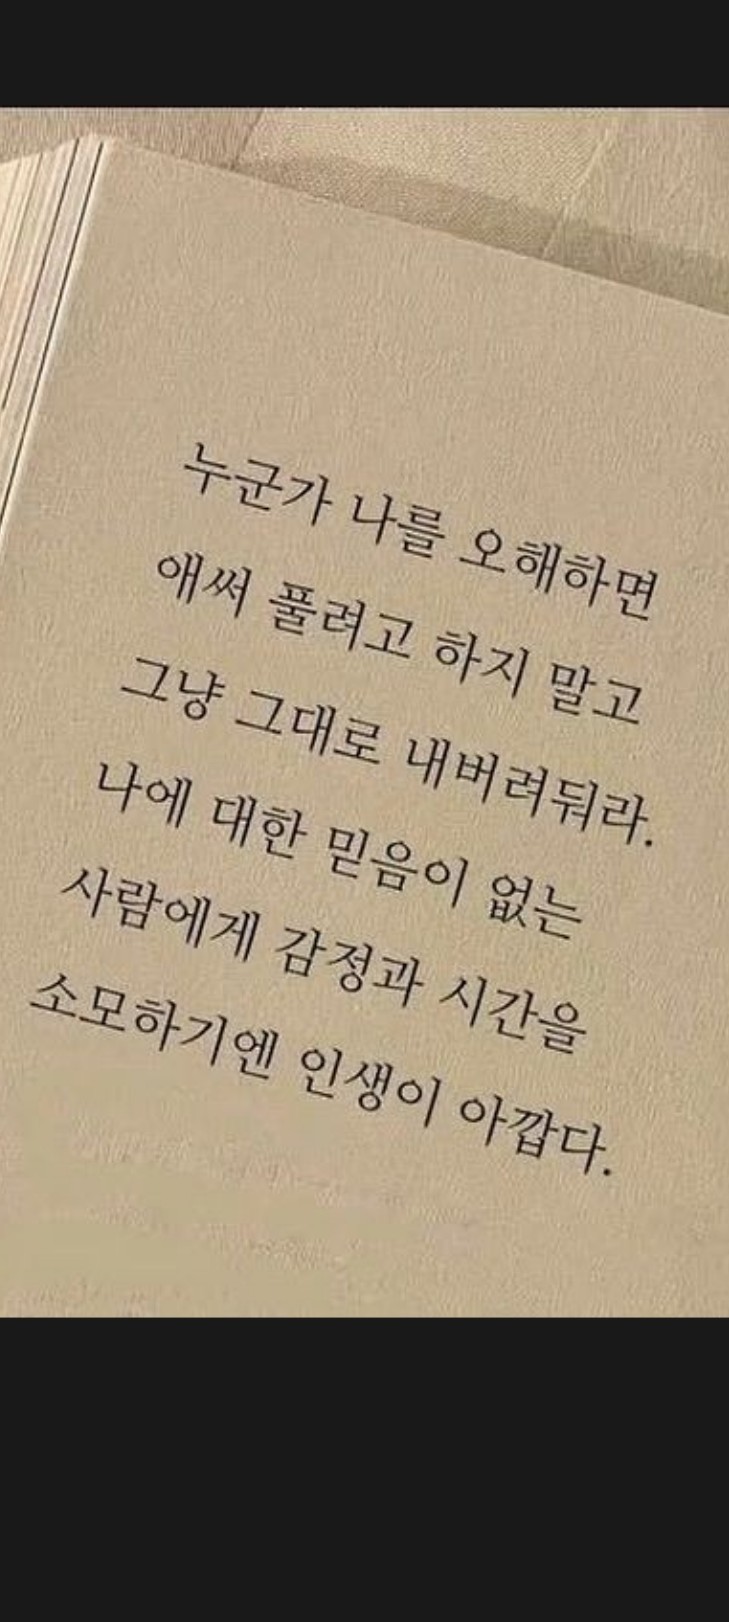 누군가 나를 오해하면
애써 풀려고 하지 말고
그냥 그대로 내버려둬라.
나에 대한 믿음이 없는
사람에게 감정과 시간을
소모하기엔 인생이 아깝다.